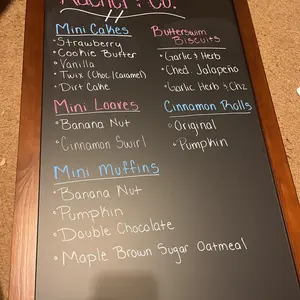 & Co.
Mini Cakes
• Strawberry
• Cookie Butter
• Vanilla
• Twix (Choc/Caramel)
• Dirt Cake
Mini Loaves
• Banana Nut
• Cinnamon Swirl
Mini Muffins
• Banana Nut
• Pumpkin
• Double Chocolate
• Maple Brown Sugar Oatmeal
Butterswim
Biscuits
• Garlic & Herb
• Ched. Jalapeño
• Garlic Herb & Chz
Cinnamon Rolls
• Original
• Pumpkin